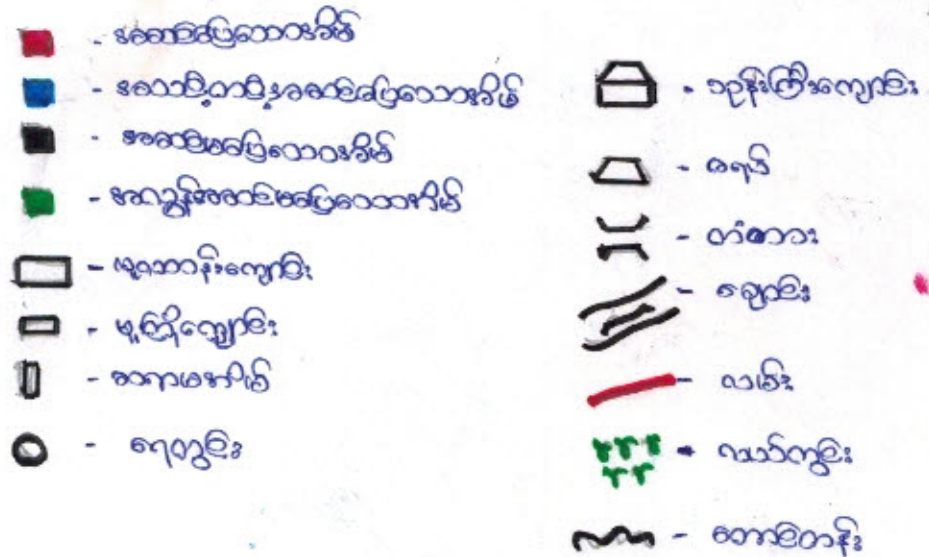 - အဆင်ပြေသောအိမ်
- အသင့်တင့်အဆင်ပြေသောအိမ်
- အဆင်မပြေသောအိမ်
- အလွန်အဆင်မပြေသောအိမ်
- မူလတန်းကျောင်း
- မူကြိုကျောင်း
- ဆရာမအိမ်
- ရေတွင်း
- ဘုန်းကြီးကျောင်း
- ဇရပ်
- တံတား
- ချောင်း
- လမ်း
- လယ်ကွင်း
- တောင်တန်း